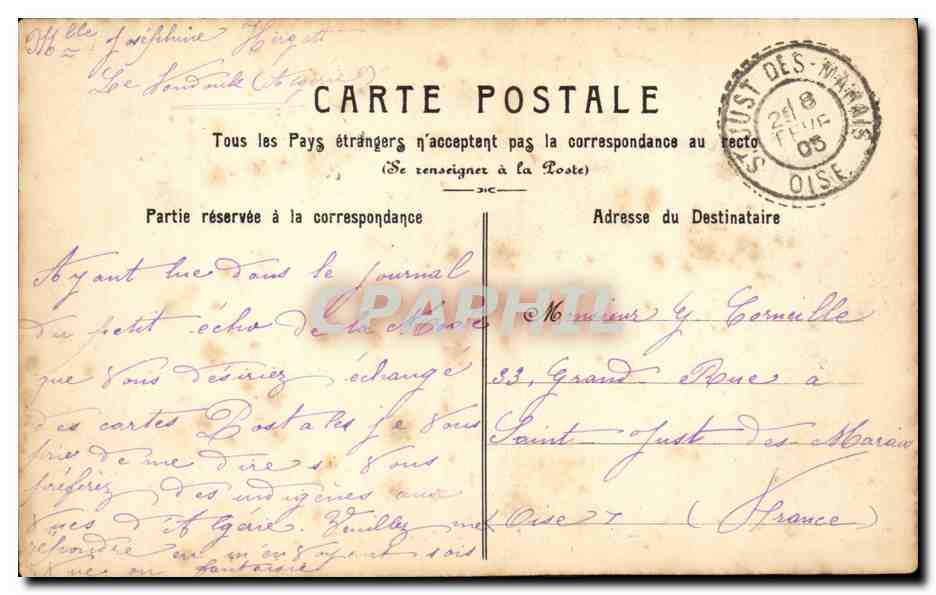 Mlle Joséphine Hirgott
Le Vondouk (Algérie)
CARTE POSTALE
Tous les Pays étrangers n'acceptent pas la correspondance au recto
(Se renseigner à la Poste)
Partie réservée à la correspondance
Ayant lue dans le journal
du petit écho de la Mode
que vous désiriez échangé
des cartes Postales je vous
prie de me dire si vous
préférez des indigènes aux
vues d'Algérie. Veuillez me
répondre en m'envoyant sois
vue ou fantaisie
Adresse du Destinataire
Monsieur G Corneille
33, Grand Rue à
Saint Just des Marais
Oise
(France)
ST JUST-DES-MARAIS
18
05
OISE
CPAPHIL